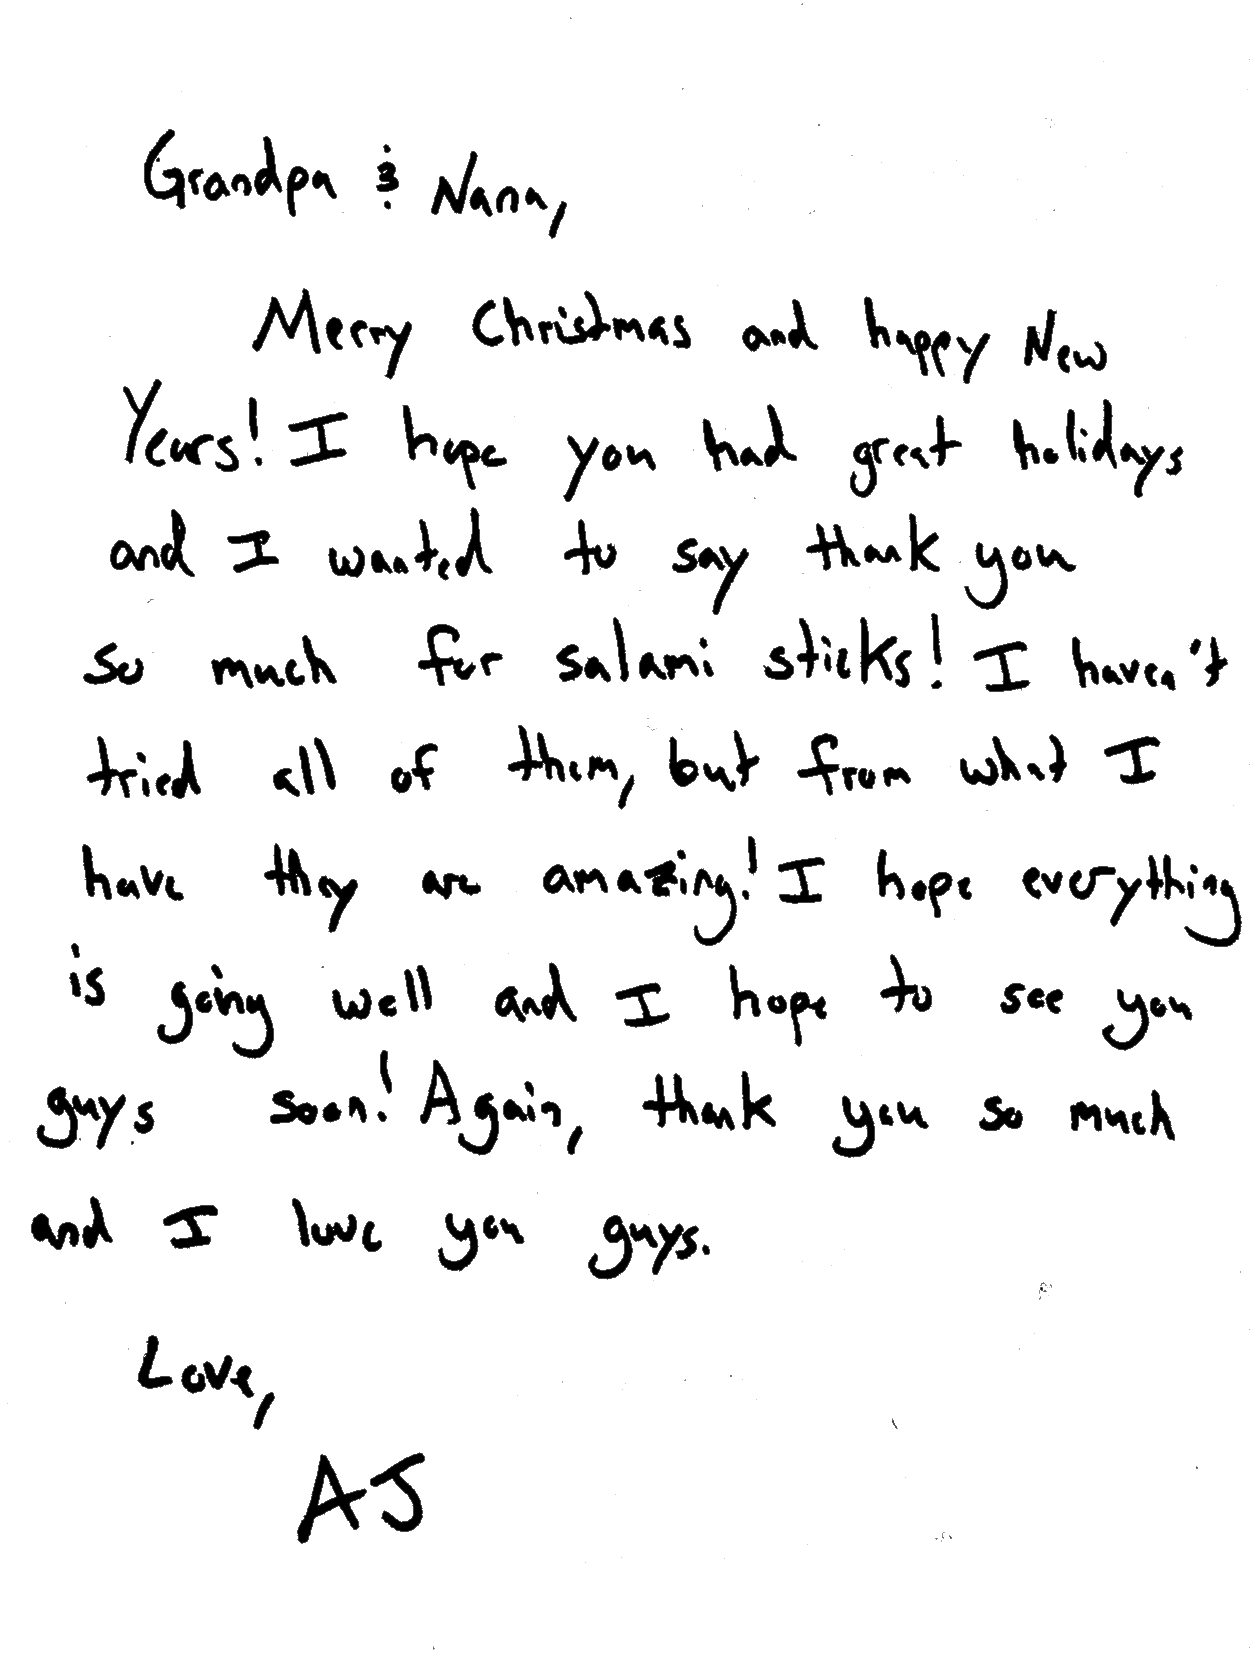 Grandpa & Nana,
Merry Christmas and happy New
Years! I hope you had great holidays
and I wanted to say thank you
so much for salami sticks! I haven't
tried all of them, but from what I
have they are amazing! I hope everything
is going well and I hope to see you
guys soon! Again, thank you so much
and I love you guys.
Love,
AJ